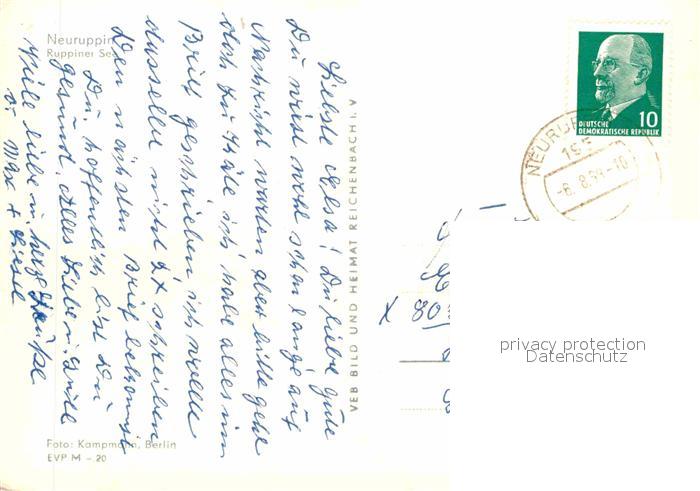 Neuruppin
Ruppiner See
Liebste Elsa! Du liebe gute
Du wirst wohl schon lange auf
Nachricht warten aber bitte geht
doch zu Käte ich habe alles im
Brief geschrieben ich wollte
dasselbe nicht 2x schreiben
Den nächsten Brief bekommst
Du. hoffentlich bist Du
gesund. Alles Liebe u. Gute
Viele liebe u. herzl. Grüße
v. Max + Liesel
Foto: Kampmann, Berlin
EVP M -.20
VEB BILD UND HEIMAT REICHENBACH I. V
10
DEUTSCHE
DEMOKRATISCHE REPUBLIK
NEURUPPIN
195
-6. 8. 63-10
X 80
privacy protection
Datenschutz